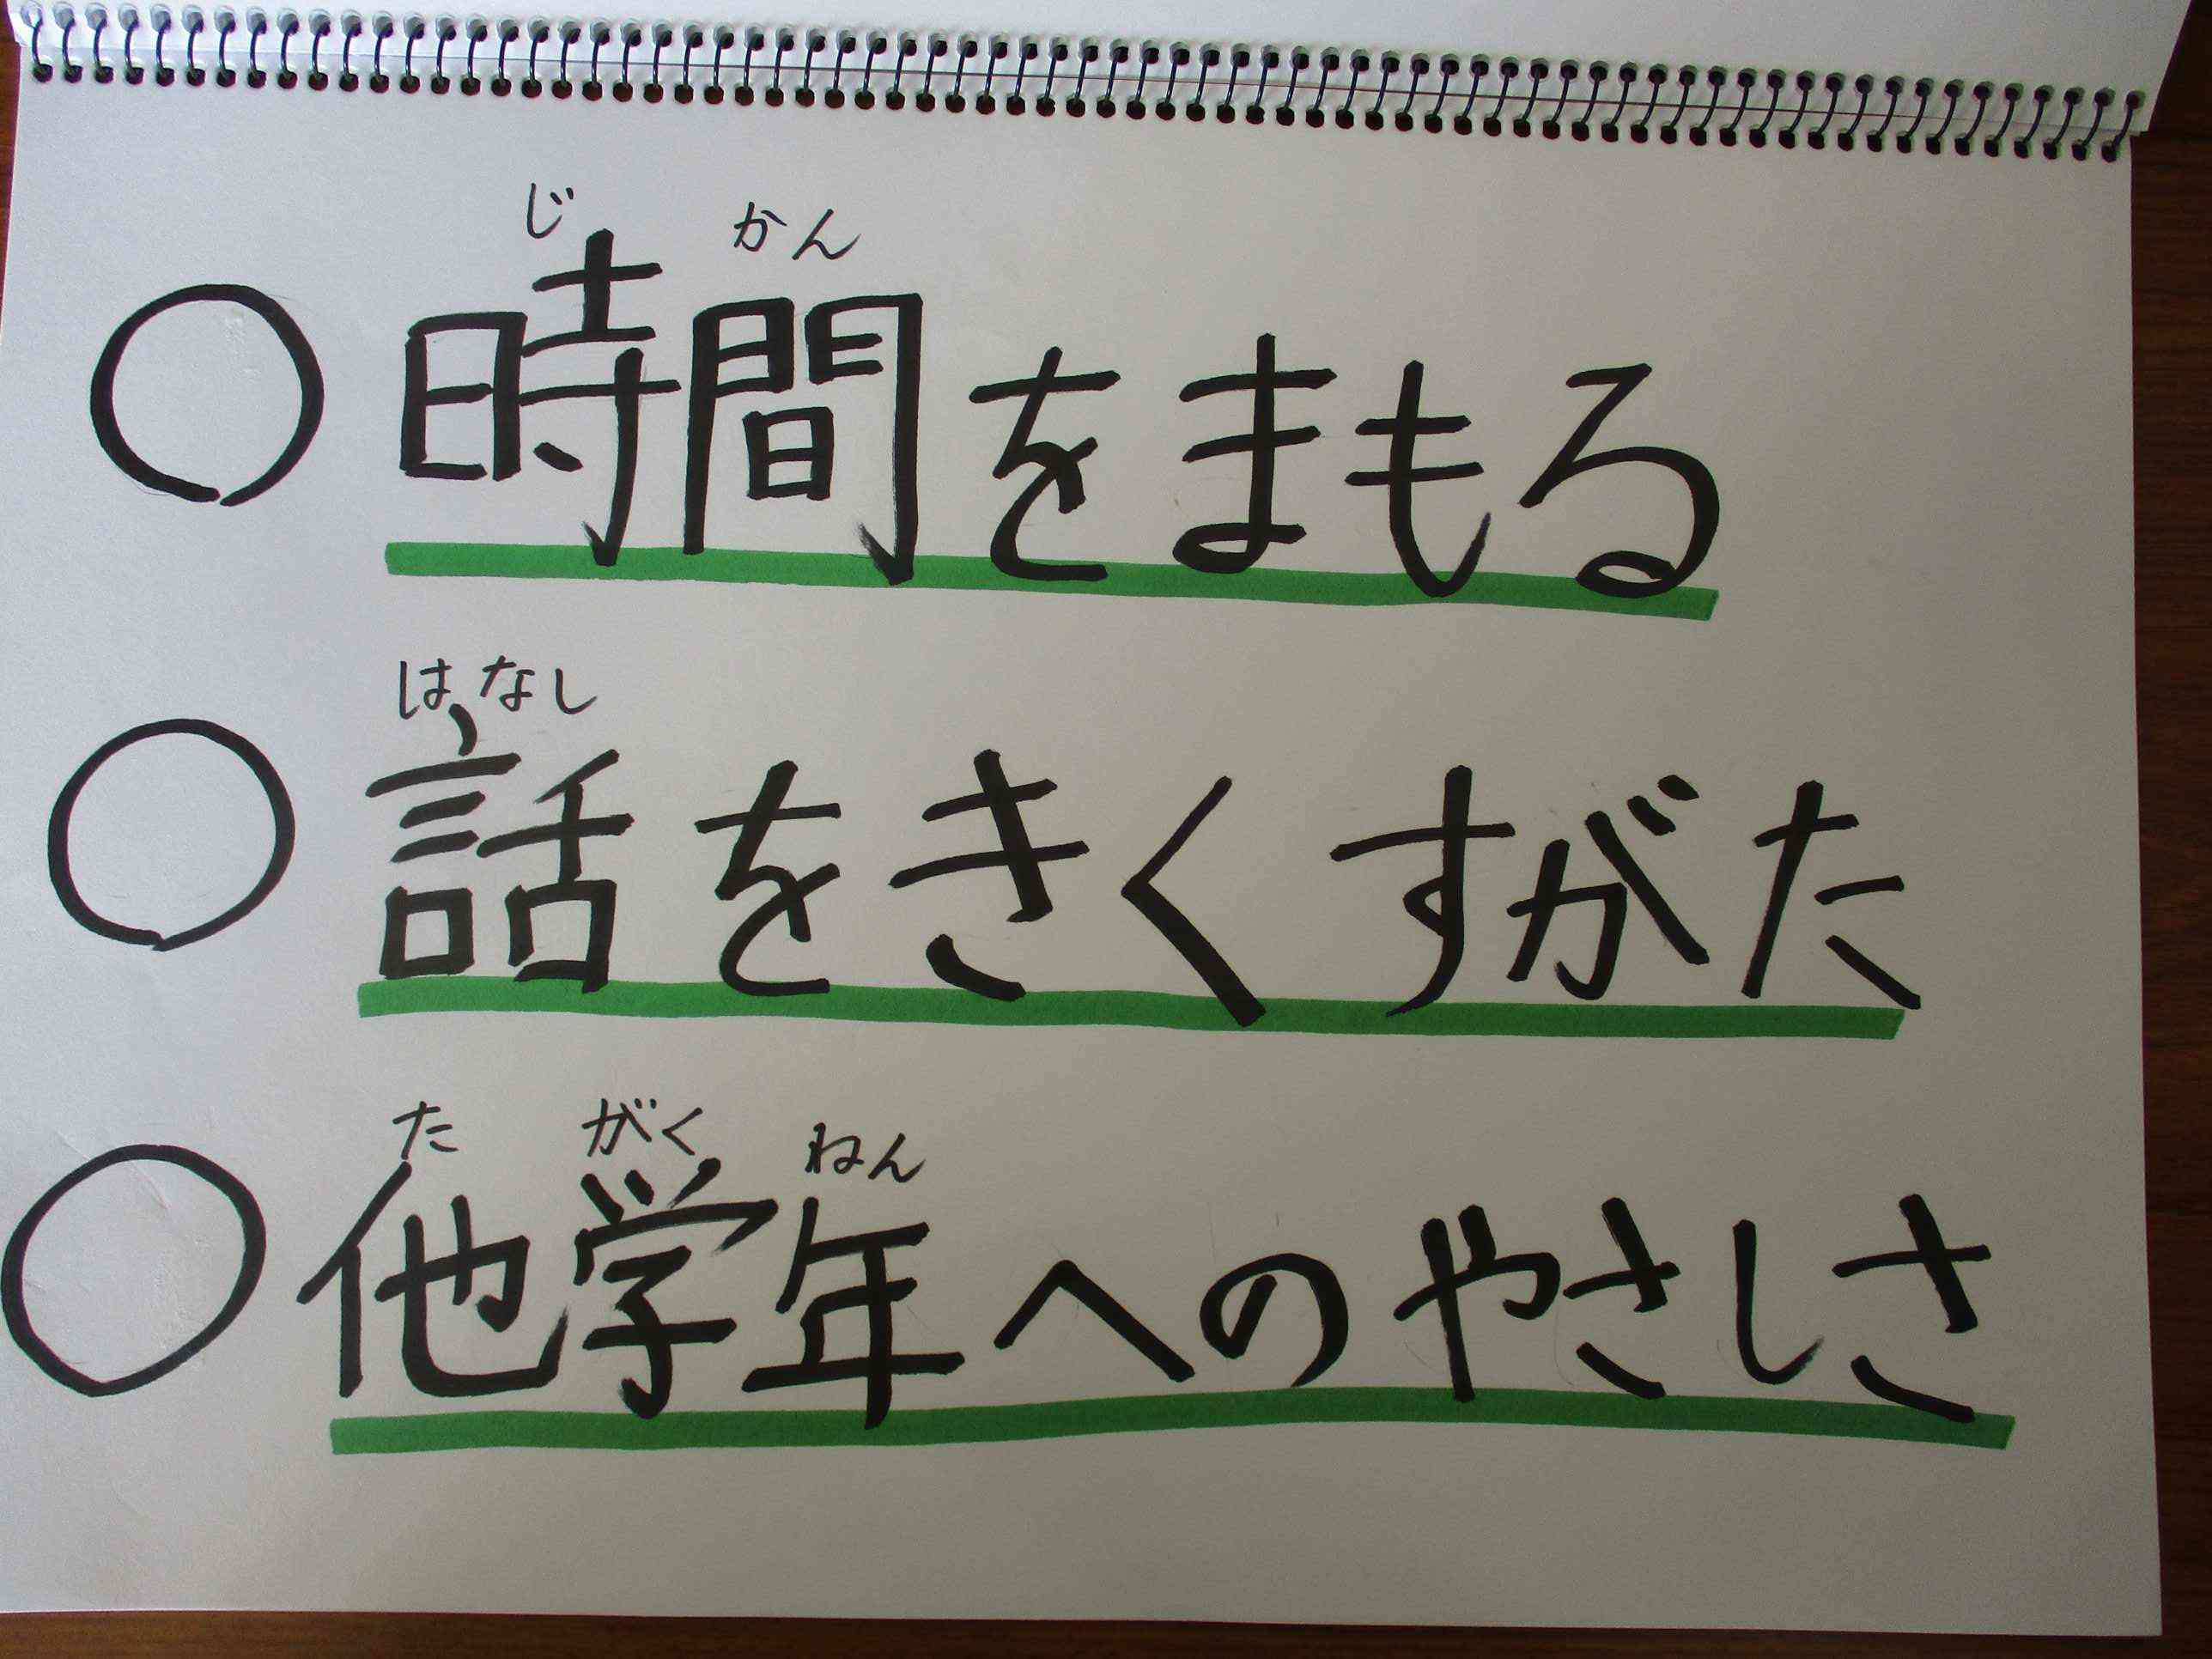 じ かん
○ 時間をまもる
はなし
○ 話をきくすがた
た がく ねん
○ 他学年へのやさしさ